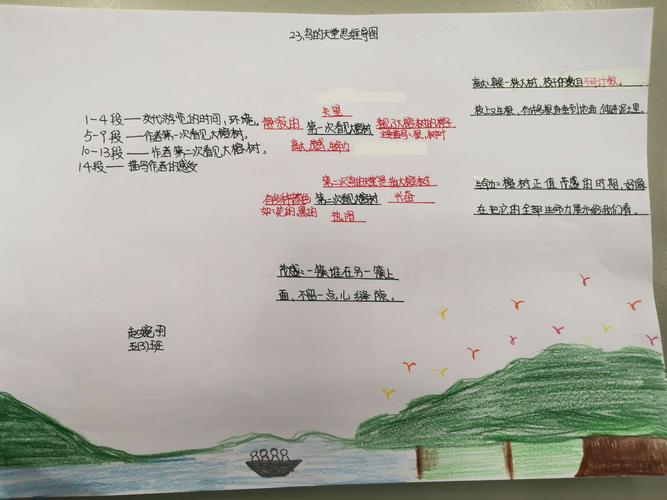 23、鸟的天堂思维导图
1-4段——交代游览的时间,环境。
5-9段——作者第一次看见大榕树。
10-13段——作者第二次看见大榕树。
14段——描写作者的感受
失望
静寂的 第一次看见大榕树
高大 茂盛 生动
第二次
有各种颜色 第二次看见大榕树 兴奋
如:花的黑的 热闹
高大:身是一株大树,枝干的数目不可计数。
枝上又生根,有许多根直垂到地面,伸进泥土里。
生动:榕树正值茂盛的时期,好像
在把它的全部生命力展示给我们看。
茂盛:一簇堆在另一簇上
面,不留一点儿缝隙。
赵婉
五(3)班